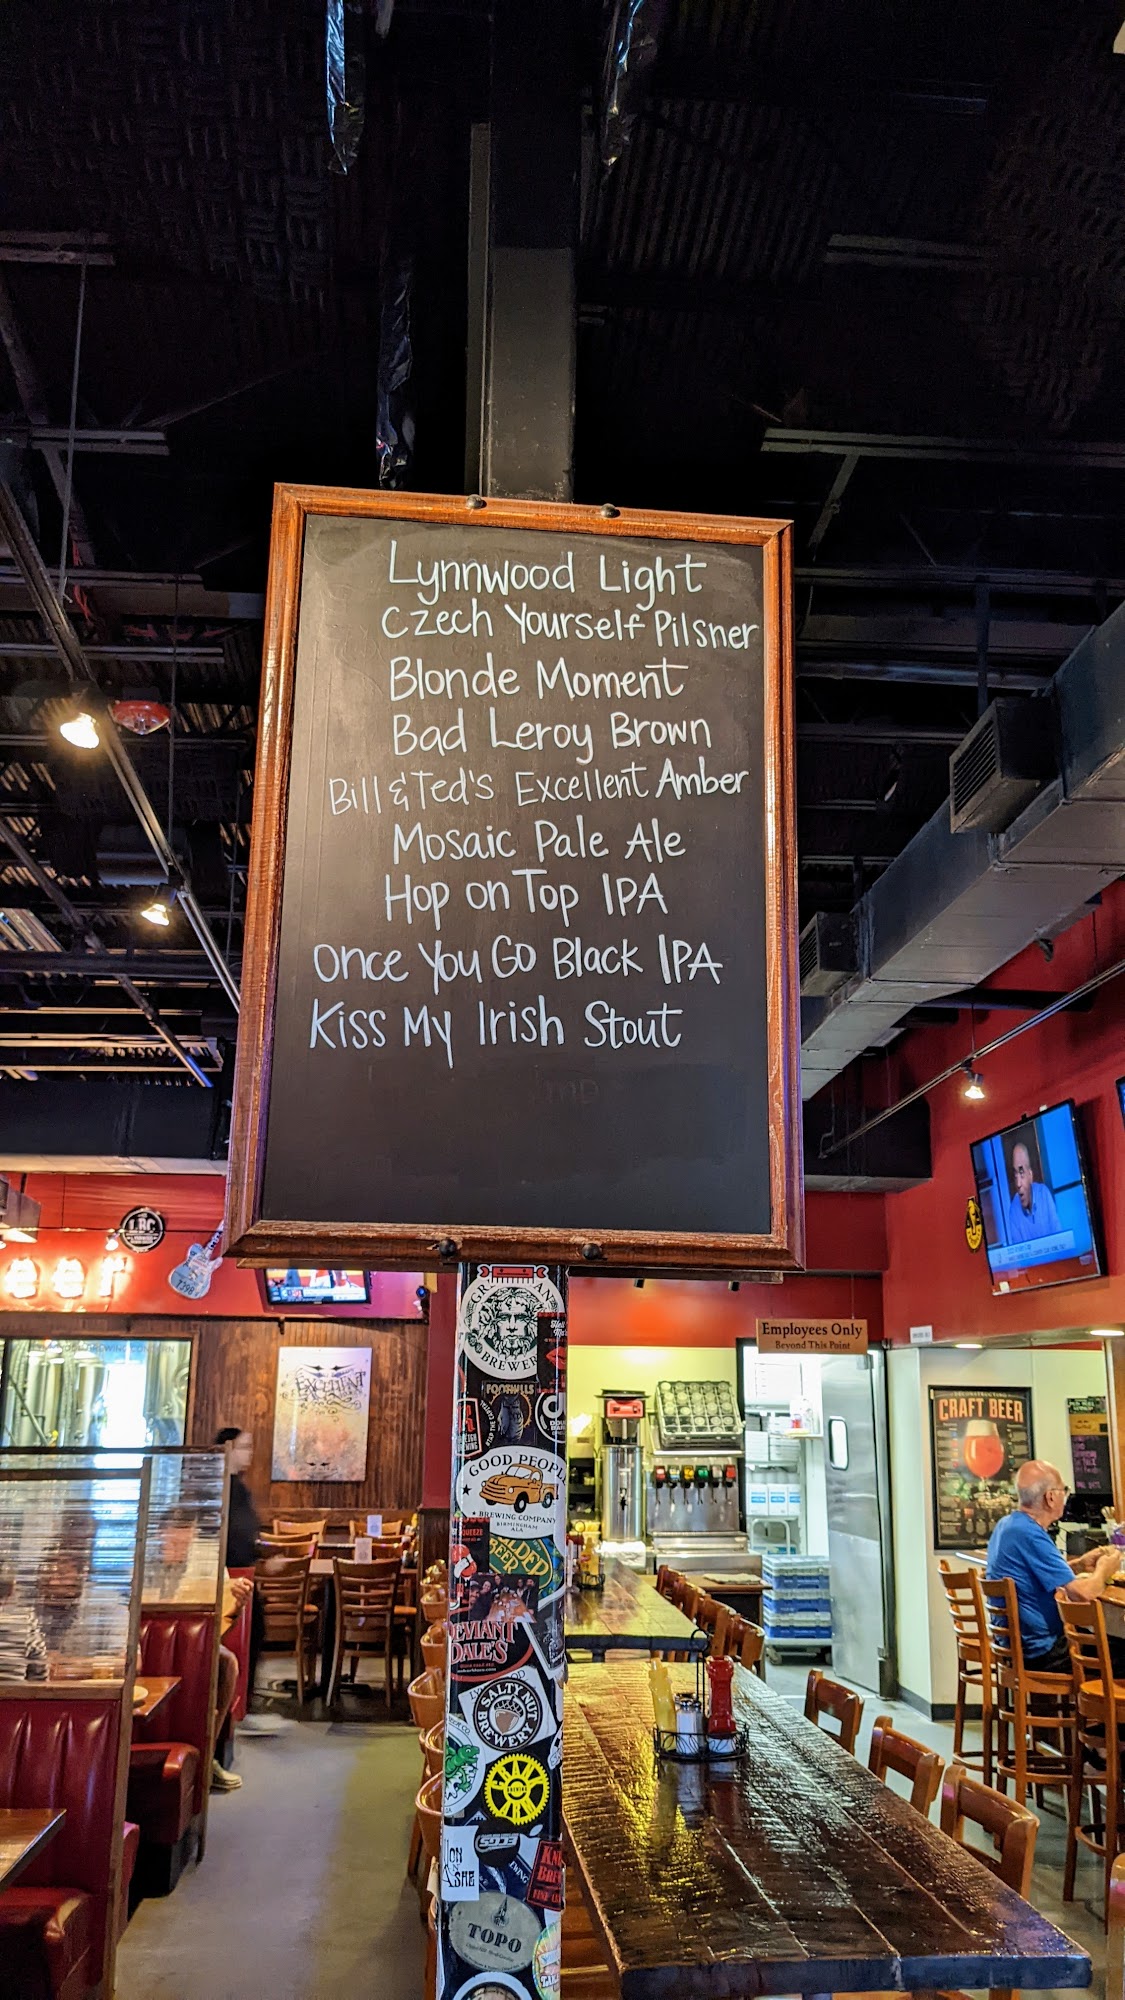 Lynnwood Light
Czech Yourself Pilsner
Blonde Moment
Bad Leroy Brown
Bill & Ted's Excellent Amber
Mosaic Pale Ale
Hop on Top IPA
Once You Go Black IPA
Kiss My Irish Stout
LBC
Employees Only
Beyond This Point
CRAFT BEER
BREWERY
FOOTHILLS
GOOD PEOPLE
BREWING COMPANY
BIRMINGHAM
ALA
DEVIANT
DALE'S
SALTY NUT
BREWERY
CRANK
ARM
BREWING
TOPO